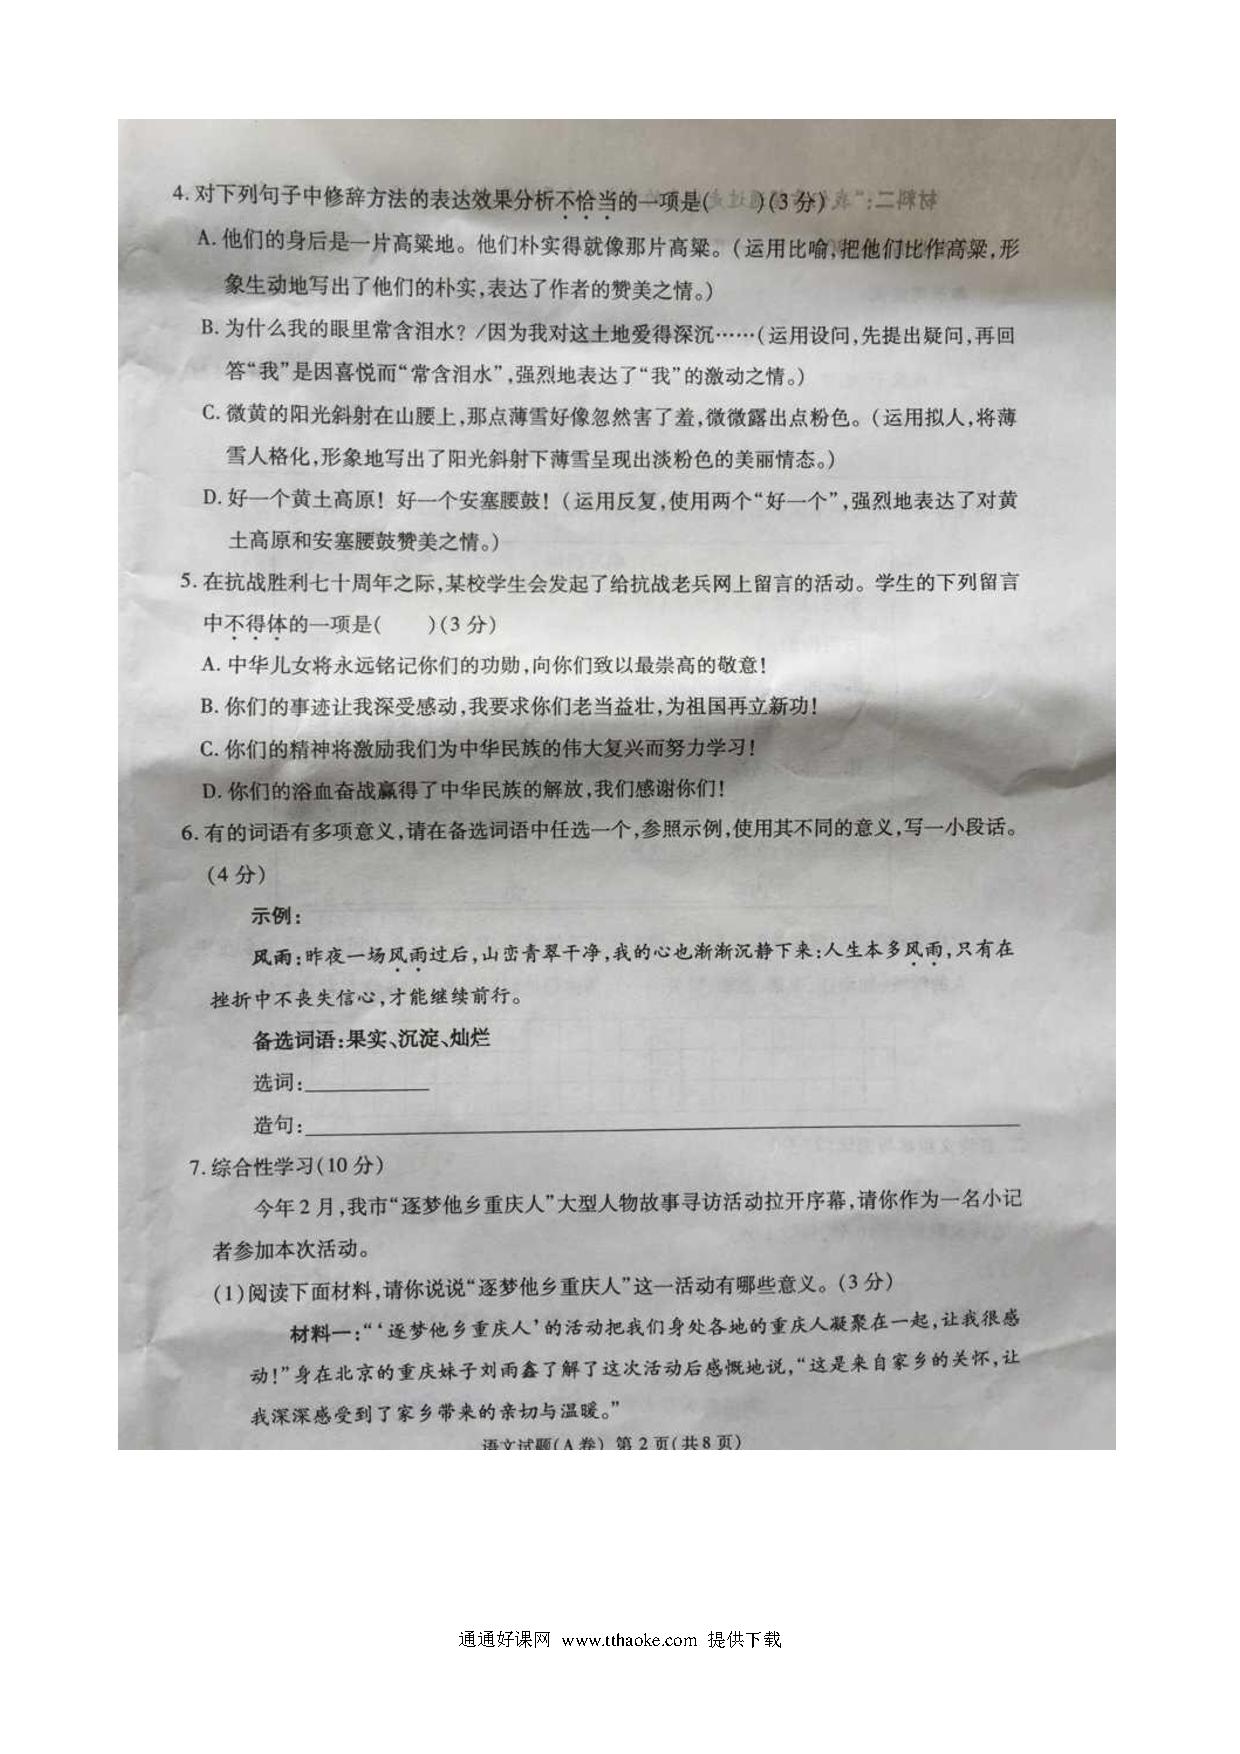 4.对下列句子中修辞方法的表达效果分析不恰当的一项是(　　)(3分)
A.他们的身后是一片高粱地。他们朴实得就像那片高粱。(运用比喻,把他们比作高粱,形
象生动地写出了他们的朴实,表达了作者的赞美之情。)
B.为什么我的眼里常含泪水？/因为我对这土地爱得深沉……(运用设问,先提出疑问,再回
答“我”是因喜悦而“常含泪水”,强烈地表达了“我”的激动之情。)
C.微黄的阳光斜射在山腰上,那点薄雪好像忽然害了羞,微微露出点粉色。(运用拟人,将薄
雪人格化,形象地写出了阳光斜射下薄雪呈现出淡粉色的美丽情态。)
D.好一个黄土高原！好一个安塞腰鼓！(运用反复,使用两个“好一个”,强烈地表达了对黄
土高原和安塞腰鼓赞美之情。)
5.在抗战胜利七十周年之际,某校学生会发起了给抗战老兵网上留言的活动。学生的下列留言
中不得体的一项是(　　)(3分)
A.中华儿女将永远铭记你们的功勋,向你们致以最崇高的敬意！
B.你们的事迹让我深受感动,我要求你们老当益壮,为祖国再立新功！
C.你们的精神将激励我们为中华民族的伟大复兴而努力学习！
D.你们的浴血奋战赢得了中华民族的解放,我们感谢你们！
6.有的词语有多项意义,请在备选词语中任选一个,参照示例,使用其不同的意义,写一小段话。
(4分)
示例：
风雨：昨夜一场风雨过后,山峦青翠干净,我的心也渐渐沉静下来：人生本多风雨,只有在
挫折中不丧失信心,才能继续前行。
备选词语：果实、沉淀、灿烂
选词：
造句：
7.综合性学习(10分)
今年2月,我市“逐梦他乡重庆人”大型人物故事寻访活动拉开序幕,请你作为一名小记
者参加本次活动。
(1)阅读下面材料,请你说说“逐梦他乡重庆人”这一活动有哪些意义。(3分)
材料一：“‘逐梦他乡重庆人’的活动把我们身处各地的重庆人凝聚在一起,让我很感
动！”身在北京的重庆妹子刘雨鑫了解了这次活动后感慨地说,“这是来自家乡的关怀,让
我深深感受到了家乡带来的亲切与温暖。”
语文试题(A卷) 第2页(共8页)
通通好课网 www.tthaoke.com 提供下载